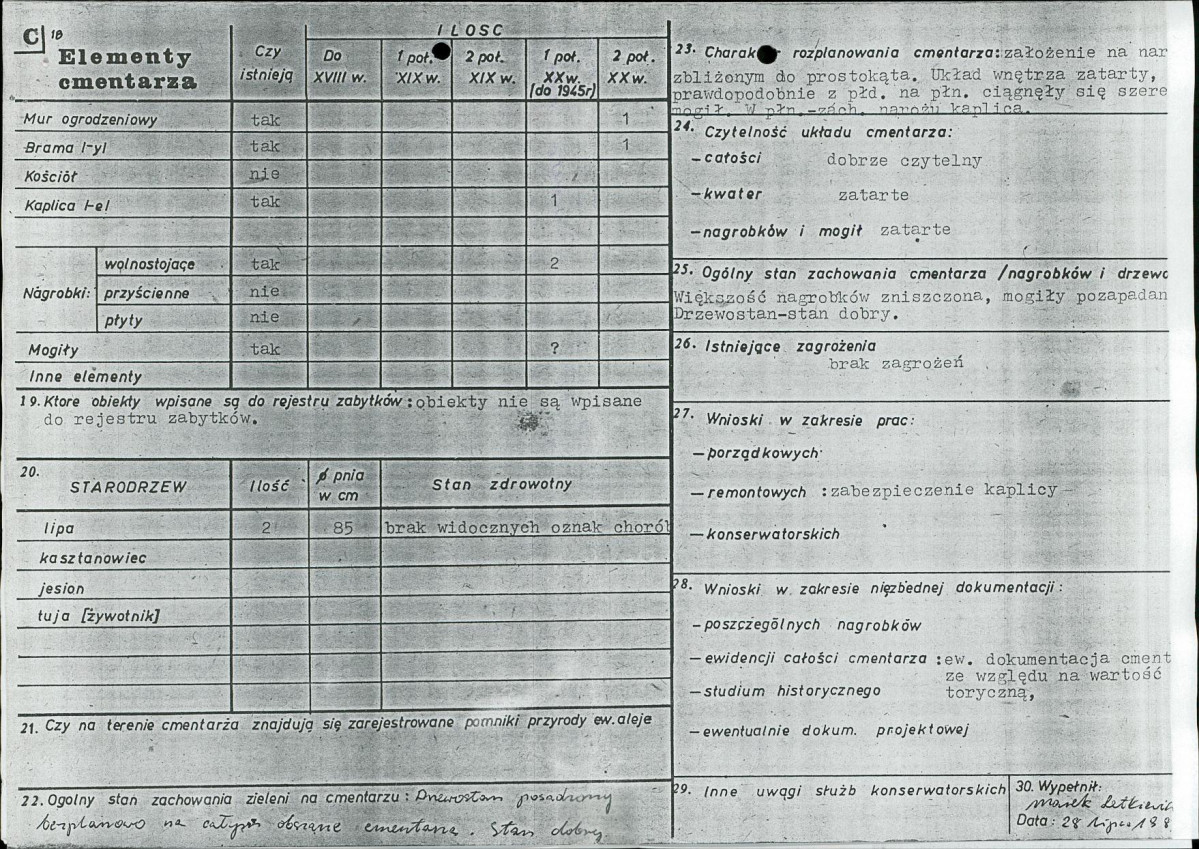 C 18
Elementy
cmentarza
Czy
istnieją
ILOSC
Do
XVIII w.
1 poł.
XIX w.
2 poł.
XIX w.
1 poł.
XX w.
(do 1945r)
2 poł.
XX w.
Mur ogrodzeniowy tak 1
Brama /-y/ tak 1
Kościół nie
Kaplica /-e/ tak 1
Nagrobki: wolnostojące tak 2
przyścienne nie
płyty nie
Mogiły tak ?
Inne elementy
19. Ktore obiekty wpisane są do rejestru zabytków: obiekty nie są wpisane
do rejestru zabytków.
20.
STARODRZEW
Ilość
ø pnia
w cm
Stan zdrowotny
lipa 2 85 brak widocznych oznak chorób
kasztanowiec
jesion
tuja [żywotnik]
21. Czy na terenie cmentarża znajdują się zarejestrowane pomniki przyrody ew. aleje
22. Ogolny stan zachowania zieleni na cmentarzu: Drzewostan posadzony
bezplanowo na całym obszarze cmentarza. Stan dobry.
23. rozplanowania cmentarza: założenie na nar
zbliżonym do prostokąta. Układ wnętrza zatarty,
prawdopodobnie z płd. na płn. ciągnęły się szere
mogił. W płn.-zach. narożu kaplica.
24. Czytelność układu cmentarza:
-całości dobrze czytelny
-kwater zatarte
-nagrobków i mogił zatarte
25. Ogólny stan zachowania cmentarza /nagrobków i drzewo
Większość nagrobków zniszczona, mogiły pozapadan
Drzewostan-stan dobry.
26. Istniejące zagrożenia
brak zagrożeń
27. Wnioski w zakresie prac:
-porządkowych
-remontowych :zabezpieczenie kaplicy
-konserwatorskich
28. Wnioski w zakresie niezbędnej dokumentacji:
-poszczególnych nagrobków
-ewidencji całości cmentarza :ew. dokumentacja cment
ze względu na wartość
-studium historycznego toryczną,
-ewentualnie dokum. projektowej
29. Inne uwagi służb konserwatorskich
30. Wypełnił:
Marek
Data: 28 lipca 198